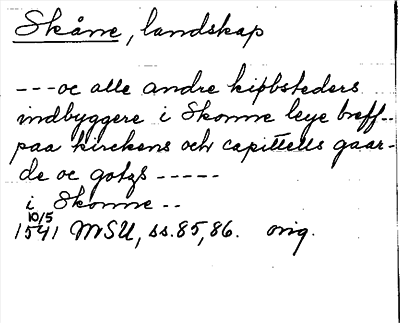 Skåne, landskap
---oc alle andre kiøbsteders
indbyggere i Skonne leye breff..
paa kirckens och capittells gaar-
de oc gotzs -----
i Skonne --
10/5
1541 MSU, ss. 85, 86. orig.